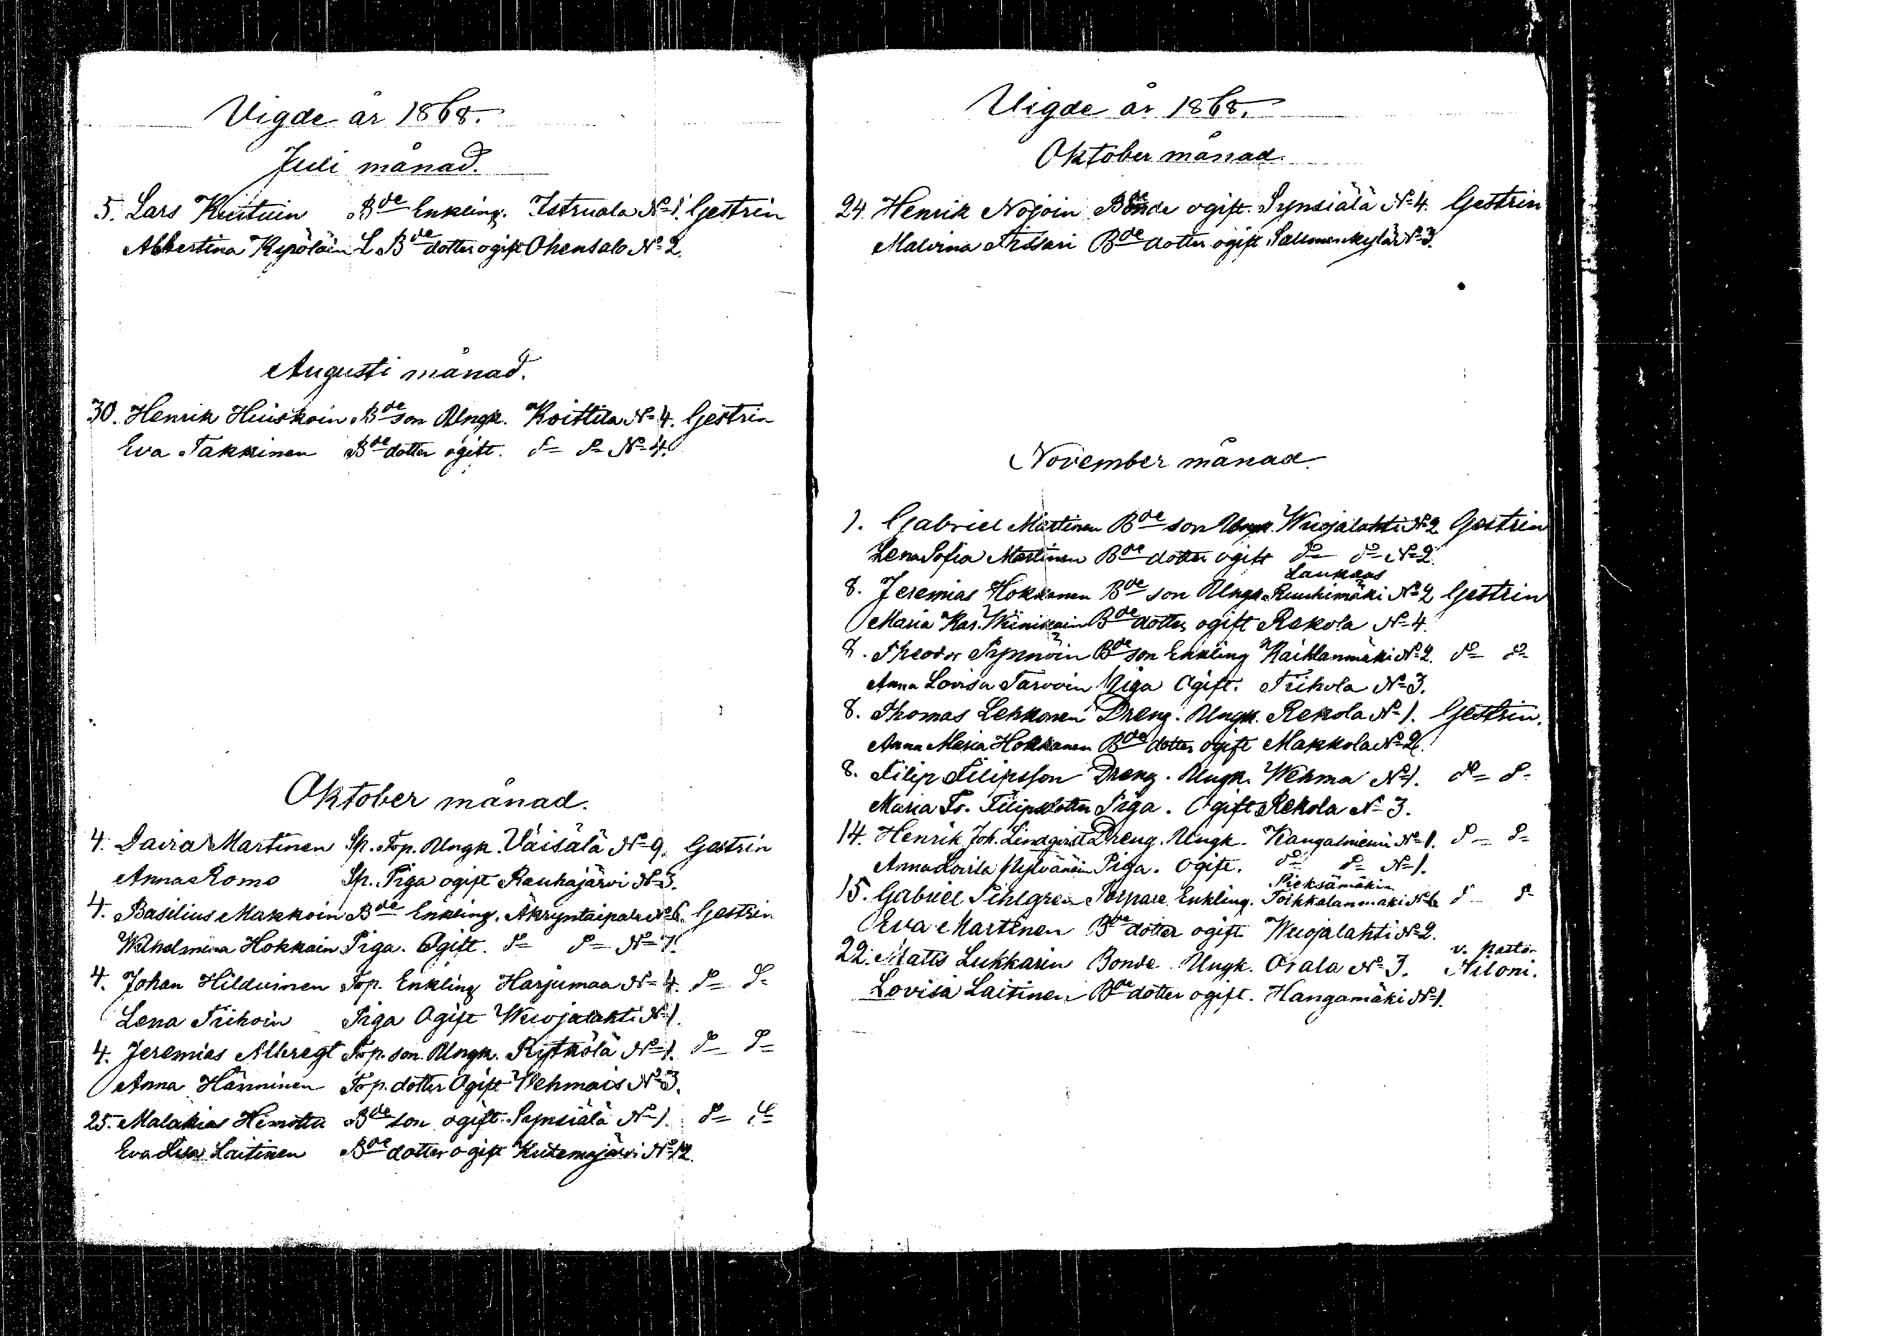 Vigde år 1868.
Juli månad.
5. Lars Kuituin Bde Enkling. Istruala No 1. Gestrin
Albertina Kypöläin L. Bde dotter ogift Ohensalo No 2.
Augusti månad.
30. Henrik Huiskoin Bde son Ungk. Koittila No 4. Gestrin
Eva Takkinen Bde dotter ogift. do do No 4.
Oktober månad.
4. David Martinen Sp. Top. Ungk. Väisälä No 9. Gestrin
Anna Romo Sp. Piga ogift Rauhajärvi No 3.
4. Basilius Makkoin Bde Enkling. Äkryntaipale No 6. Gestrin
Wilhelmina Hokkain Piga. Ogift. do do No 7.
4. Johan Hilduinen Top. Enkling Harjumaa No 4. do do
Lena Tiihoin Piga Ogift Wuojalahti No 1.
4. Jeremias Albregt Top. son. Ungk. Rytkölä No 1. do do
Anna Hänninen Top. dotter Ogift Wehmais No 3.
25. Malakias Himotta Bde son ogift. Synsiälä No 1. do do
Eva Lisa Laitinen Bde dotter ogift Kutemajärvi No 12.
Vigde år 1868.
Oktober månad.
24. Henrik Nojoin Bonde ogift. Synsiälä No 4. Gestrin
Malvina Bde dotter ogift Salmenkylä No 3.
November månad.
1. Gabriel Martinen Bde son Ungk. Wuojalahti No 2 Gestrin
Lena Sofia Martinen Bde dotter ogift do do No 2.
Laukaas
8. Jeremias Hokkanen Bde son Ungk. Ruuhimäki No 2 Gestrin
Maria Kar. Weinikain Bde dotter ogift Rekola No 4.
8. Theodor Synnöin Bde son Enkling Kaihlanmäki No 2. do do
Anna Lovisa Tarvoin Piga Ogift. Tiihola No 3.
8. Thomas Lehkonen Dreng. Ungk. Rekola No 1. Gestrin.
Anna Maria Hokkanen Bde dotter ogift Makkola No 2.
8. Filip Filipsson Dreng. Ungk. Wehma No 1. do do
Maria Fr. Filipsdotter Piga. Ogift Rekola No 3.
14. Henrik Joh. Lindqvist Dreng. Ungk. Kangasniemi No 1. do do
Anna Lovisa Piga. Ogift. do do No 1.
Pieksämäkin
15. Gabriel Pihlgren Torpare Enkling. Toikkalanmäki No 6. do do
Eva Martinen Bde dotter ogift Wuojalahti No 2.
v. Pastor
22. Matts Lukkarin Bonde Ungk. Orala No 3. Niloni.
Lovisa Laitinen Bde dotter ogift. Hangamäki No 1.